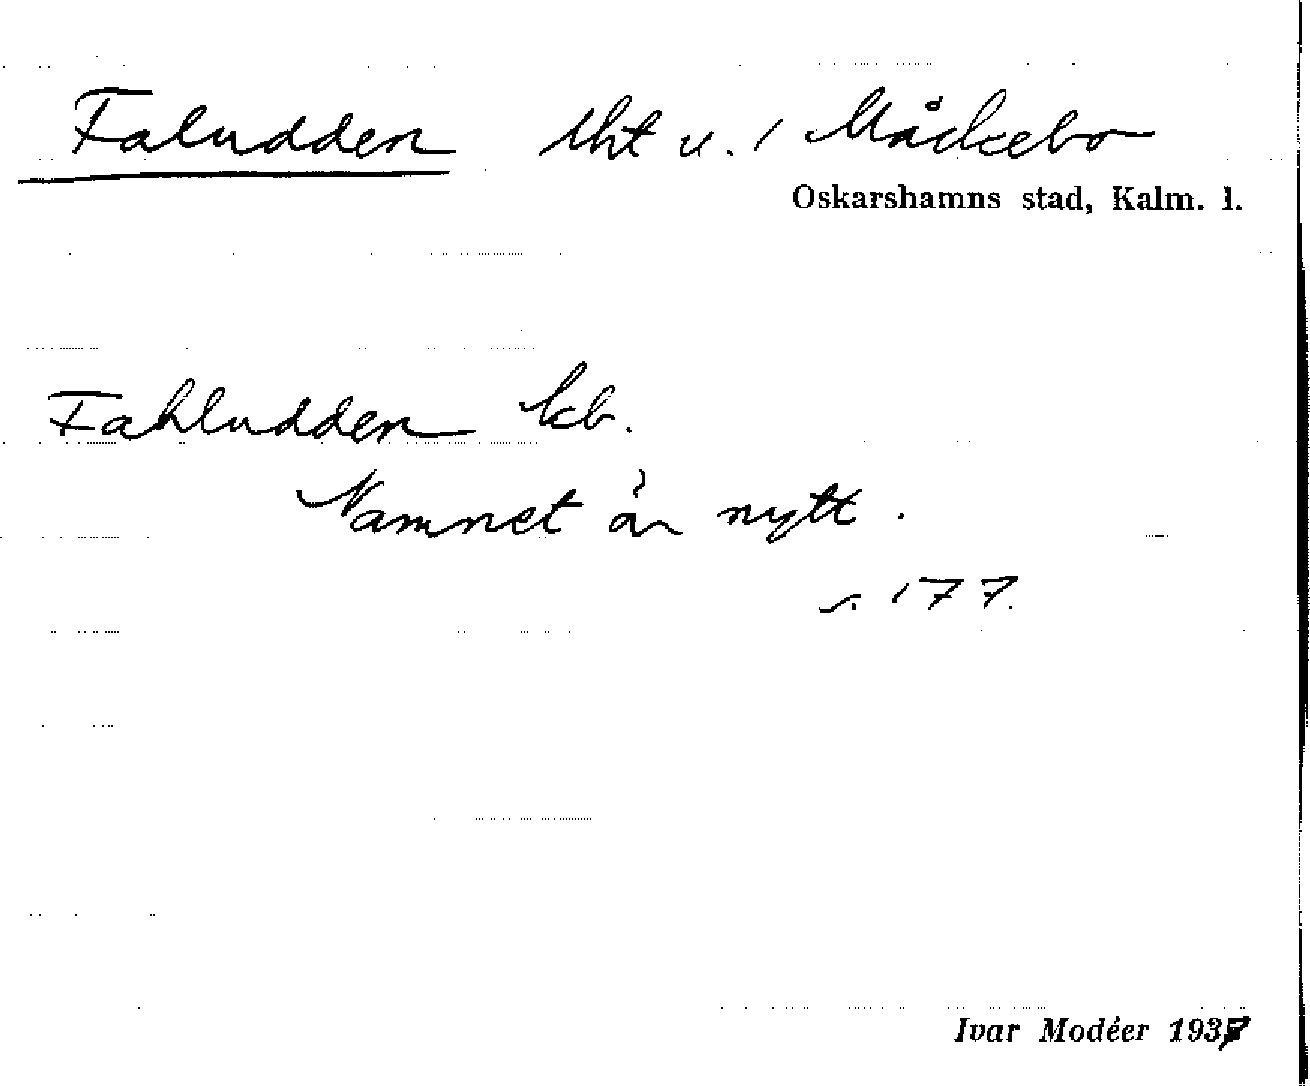 Faludden lht u. / Måckebo
Oskarshamns stad, Kalm. l.
Fahludden kb.
Namnet är nytt.
s. 177.
Ivar Modéer 1937